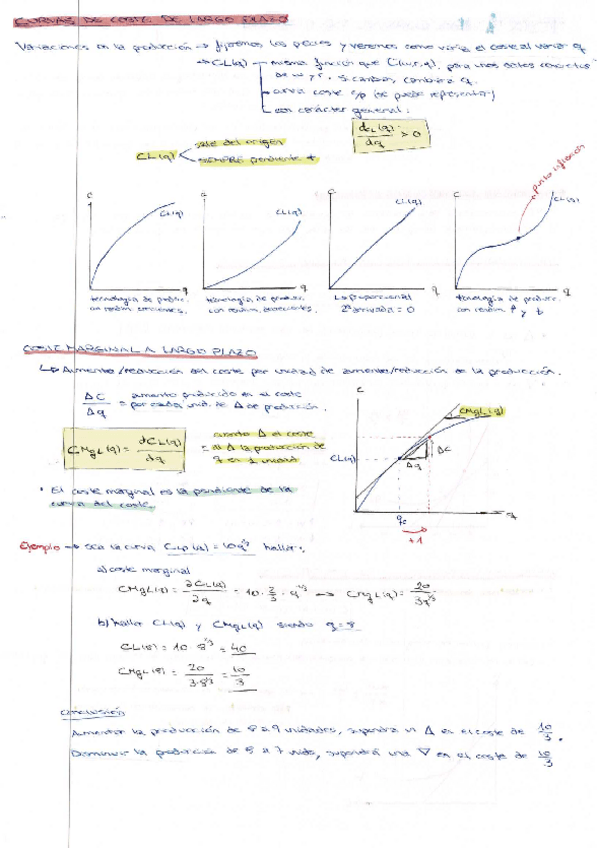 CURVAS DE COSTE DE LARGO PLAZO
Variaciones en la producción → fijaremos los precios y veremos como varía el coste al variar q
→ CL(q) misma función que C(w,r,q), para unos datos concretos
de w y r. Si cambian, cambiará q.
curva coste c/p (se puede representar)
con carácter general:
dCL(q)/dq > 0
CL(q) sale del origen
SIEMPRE pendiente +
punto inflexión
C C C C
CL(q) CL(q) CL(q) CL(q)
q q q q
tecnología de produc. con rendim. crecientes.
tecnología de produc. con rendim. decrecientes.
Lo proporcional 2ª derivada = 0
tecnología de producc. con rendim. ↑ y ↓
COSTE MARGINAL A LARGO PLAZO
↳ Aumento/reducción del coste por unidad de aumento/reducción en la producción.
ΔC/Δq = aumento producido en el coste por cada unid. de Δ de producción.
CMgL(q) = dCL(q)/dq = cuando Δ el coste al Δ la producción de q en 1 unidad
C
CMgL(q)
CL(q)
ΔC
Δq
q₀
q
+1
• El coste marginal es la pendiente de la
curva del coste.
Ejemplo → sea la curva CLP(q) = 10q^2/3 hallar:
a) coste marginal
CMgL(q) = ∂CL(q)/∂q = 10 · 2/3 · q^-1/3 → CMgL(q) = 20/3q^1/3
b) hallar CL(q) y CMgL(q) siendo q = 8
CL(8) = 10 · 8^2/3 = 40
CMgL(8) = 20/3·8^1/3 = 10/3
Conclusión
Aumentar la producción de 8 a 9 unidades, supondrá un Δ en el coste de 10/3.
Disminuir la producción de 8 a 7 unids, supondrá una ∇ en el coste de 10/3